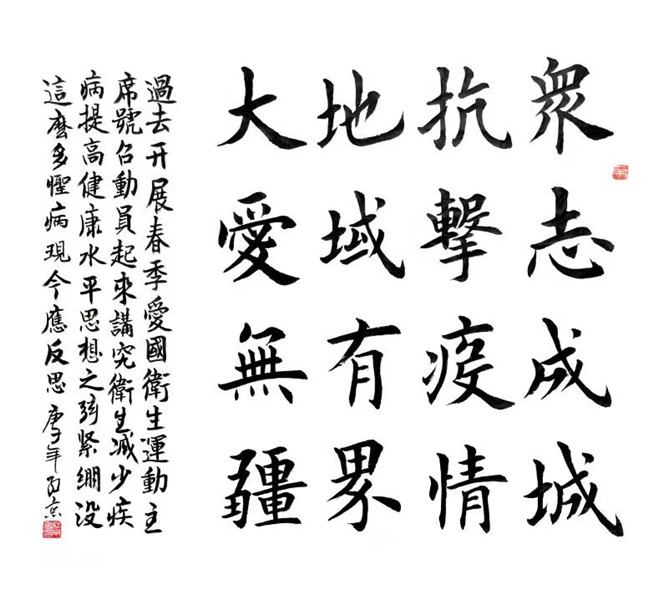 衆志成城
抗擊疫情
地域有界
大愛無疆
過去开展春季愛國衛生運動主
席號召動員起來講究衛生减少疾
病提高健康水平思想之弦緊綳没
這麽多病現今應反思庚子年